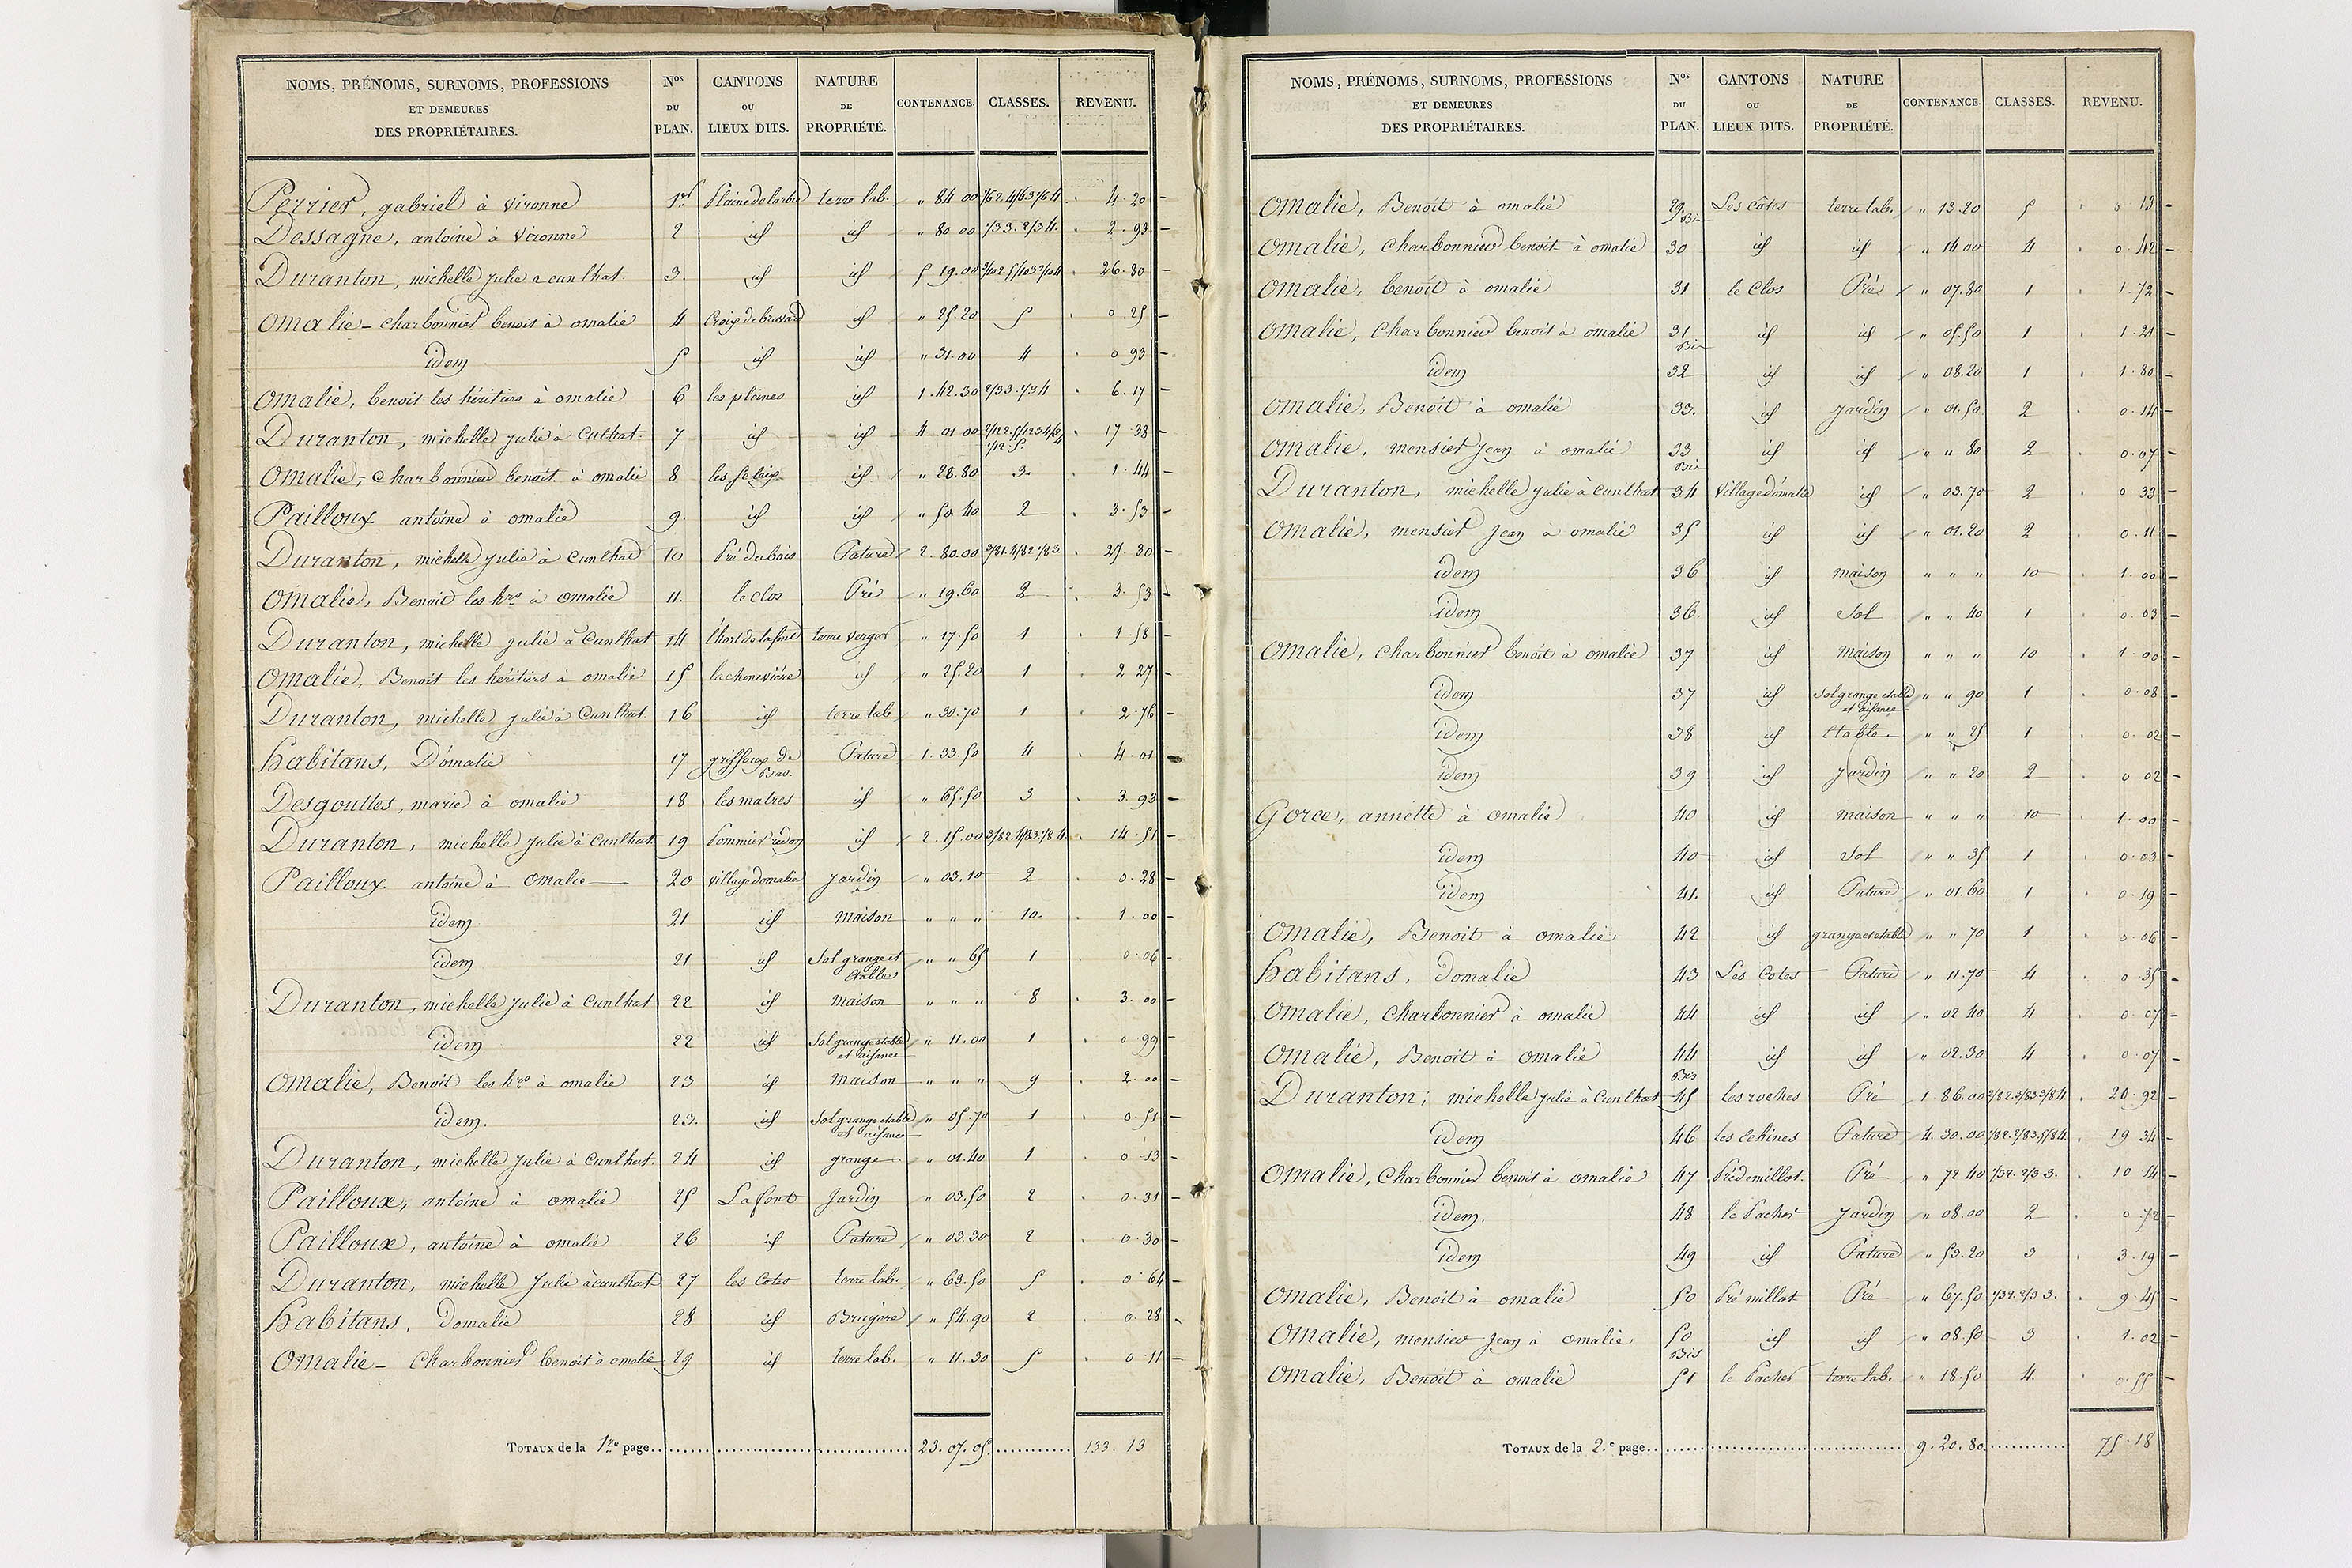 NOMS, PRÉNOMS, SURNOMS, PROFESSIONS ET DEMEURES DES PROPRIÉTAIRES. Nos DU PLAN. CANTONS OU LIEUX DITS. NATURE DE PROPRIÉTÉ. CONTENANCE. CLASSES. REVENU.
Perrier, gabriel à Vironne 1er Plaine de larbre terre lab. " 84 00 4. 20
Dessagne, antoine à Vironne 2 id id " 80 00 2. 93
Duranton, michelle julie a cunlhat 3. id id 5 19. 00 26. 80
Omalie - charbonnier benoit à omalie 4 id " 25. 20 5 0. 25
idem 5 id id " 31. 00 4 0 93
Omalie, benoit les héritiers à omalie 6 les plaines id 1. 42. 30 2/3 3. 1/3 4 6. 17
Duranton, michelle julie à Culhat. 7 id id 4 01 00 17 38
Omalie, - charbonnier benoit à omalie 8 id " 28. 80 3. 1. 44
Pailloux antoine à omalie 9. id id " 50 40 2 3. 53
Duranton, michelle julie à Cunlhat 10 Pré du bois Pature 2. 80. 00 3/8 1. 4/8 2. 1/8 3 27. 30
Omalie, Benoit les hrs à omalie 11. le clos Pré " 19. 60 2 3. 53
Duranton, michelle julie à Cunlhat 14 terre verger " 17. 50 1 1. 58
Omalie, Benoit les héritiers à omalie 15 la chenevière id " 25. 20 1 2 27
Duranton, michelle julie à Cunlhat. 16 id terre lab " 30. 70 1 2. 76
habitans, D'omalie 17 griffoux de Bas. Pature 1. 33. 50 4 4. 01
Desgouttes, marie à omalie 18 les matres id " 65. 50 3 3. 93
Duranton, michelle Julie à Cunlhat 19 Pommier redon id 2. 15. 00 3/8 2. 4/8 3. 1/8 4. 14. 51
Pailloux antoine à Omalie 20 village domalie jardin " 03. 10 2 0. 28
idem 21 id maison " " " 10. 1. 00
idem 21 id Sol grange et étable " " 65 1 0. 06
Duranton, michelle julie à Cunlhat 22 id maison " " " 8 3. 00
idem 22 id Sol grange etable et aisance " 11. 00 1 0 99
Omalie, Benoit les hrs à omalie 23 id maison " " " 9 2. 00
idem. 23. id Sol grange etable et aisance " 05. 70 1 0. 51
Duranton, michelle julie à Cunlhat. 24 id grange " 01. 40 1 0 13
Pailloux, antoine à omalie 25 Lafont Jardin " 03. 50 2 0. 31
Pailloux, antoine à omalie 26 id Pature " 03. 30 2 0. 30
Duranton, michelle Julie à cunlhat 27 les Cotes terre lab. " 63. 50 5 0 64
habitans, Domalie 28 id Brugère " 54. 90 2 0. 28
Omalie - Charbonnier benoit à omalie 29 id terre lab. " 11. 30 5 0. 11
TOTAUX de la 1re page 23. 07. 05 133. 13
NOMS, PRÉNOMS, SURNOMS, PROFESSIONS ET DEMEURES DES PROPRIÉTAIRES. Nos DU PLAN. CANTONS OU LIEUX DITS. NATURE DE PROPRIÉTÉ. CONTENANCE. CLASSES. REVENU.
Omalie, Benoit à omalie 29 Bis Les côtes terre lab. " 13. 20 5 0. 13
Omalie, charbonnier benoit à omalie 30 id id " 14 00 4 0. 42
Omalie, benoit à omalie 31 le Clos Pré " 07. 80 1 1. 72
Omalie, Charbonnier benoit à omalie 31 Bis id id " 05. 50 1 1. 21
idem 32 id id " 08. 20 1 1. 80
Omalie, Benoit à omalie 33. id Jardin " 01. 50 2 0. 14
Omalie, mensier Jean à omalie 33 Bis id id " " 80 2 0. 07
Duranton, michelle julie à Cunlhat 34 Village d'omalie id " 03. 70 2 0. 33
Omalie, mensier Jean à omalie 35 id id " 01. 20 2 0. 11
idem 36 id maison " " " 10 1. 00
idem 36. id Sol " " 40 1 0. 03
Omalie, charbonnier benoit à omalie 37 id Maison " " " 10 1. 00
idem 37 id Sol grange etable et aisance " " 90 1 0. 08
idem 38 id étable " " 25 1 0. 02
idem 39 id Jardin " " 20 2 0. 02
Gorce, annette à omalie 40 id maison " " " 10 1. 00
idem 40 id Sol " " 35 1 0. 03
idem 41. id Pature " 01. 60 1 0. 19
Omalie, Benoit à omalie 42 id grange et etable " " 70 1 0. 06
habitans, Domalie 43 Les Cotes Pature " 11. 70 4 0. 35
Omalie, Charbonnier à omalie 44 id id " 02 40 4 0. 07
Omalie, Benoit à omalie 44 Bis id id " 02. 30 4 0. 07
Duranton, michelle julie à Cunlhat 45 les roches Pré 1. 86. 00 2/8 2. 3/8 3 3/8 4. 20. 92
idem 46 les echines Pature 4. 30. 00 1/8 2. 2/8 3. 5/8 4. 19 34
Omalie, Charbonnier benoit à omalie 47 Pré de millot. Pré " 72 40 1/3 2. 2/3 3. 10. 14
idem. 48 le Pacher Jardin " 08. 00 2 0. 72
idem 49 id Pature " 53. 20 3 3. 19
Omalie, Benoit à omalie 50 Pré millot Pré " 67. 50 1/3 2. 2/3 3. 9. 45
Omalie, mensier Jean à omalie 50 Bis id id " 08. 50 3 1. 02
Omalie, Benoit à omalie 51 le Pacher terre lab. " 18. 50 4. 0. 55
TOTAUX de la 2.e page 9. 20. 80 75. 18